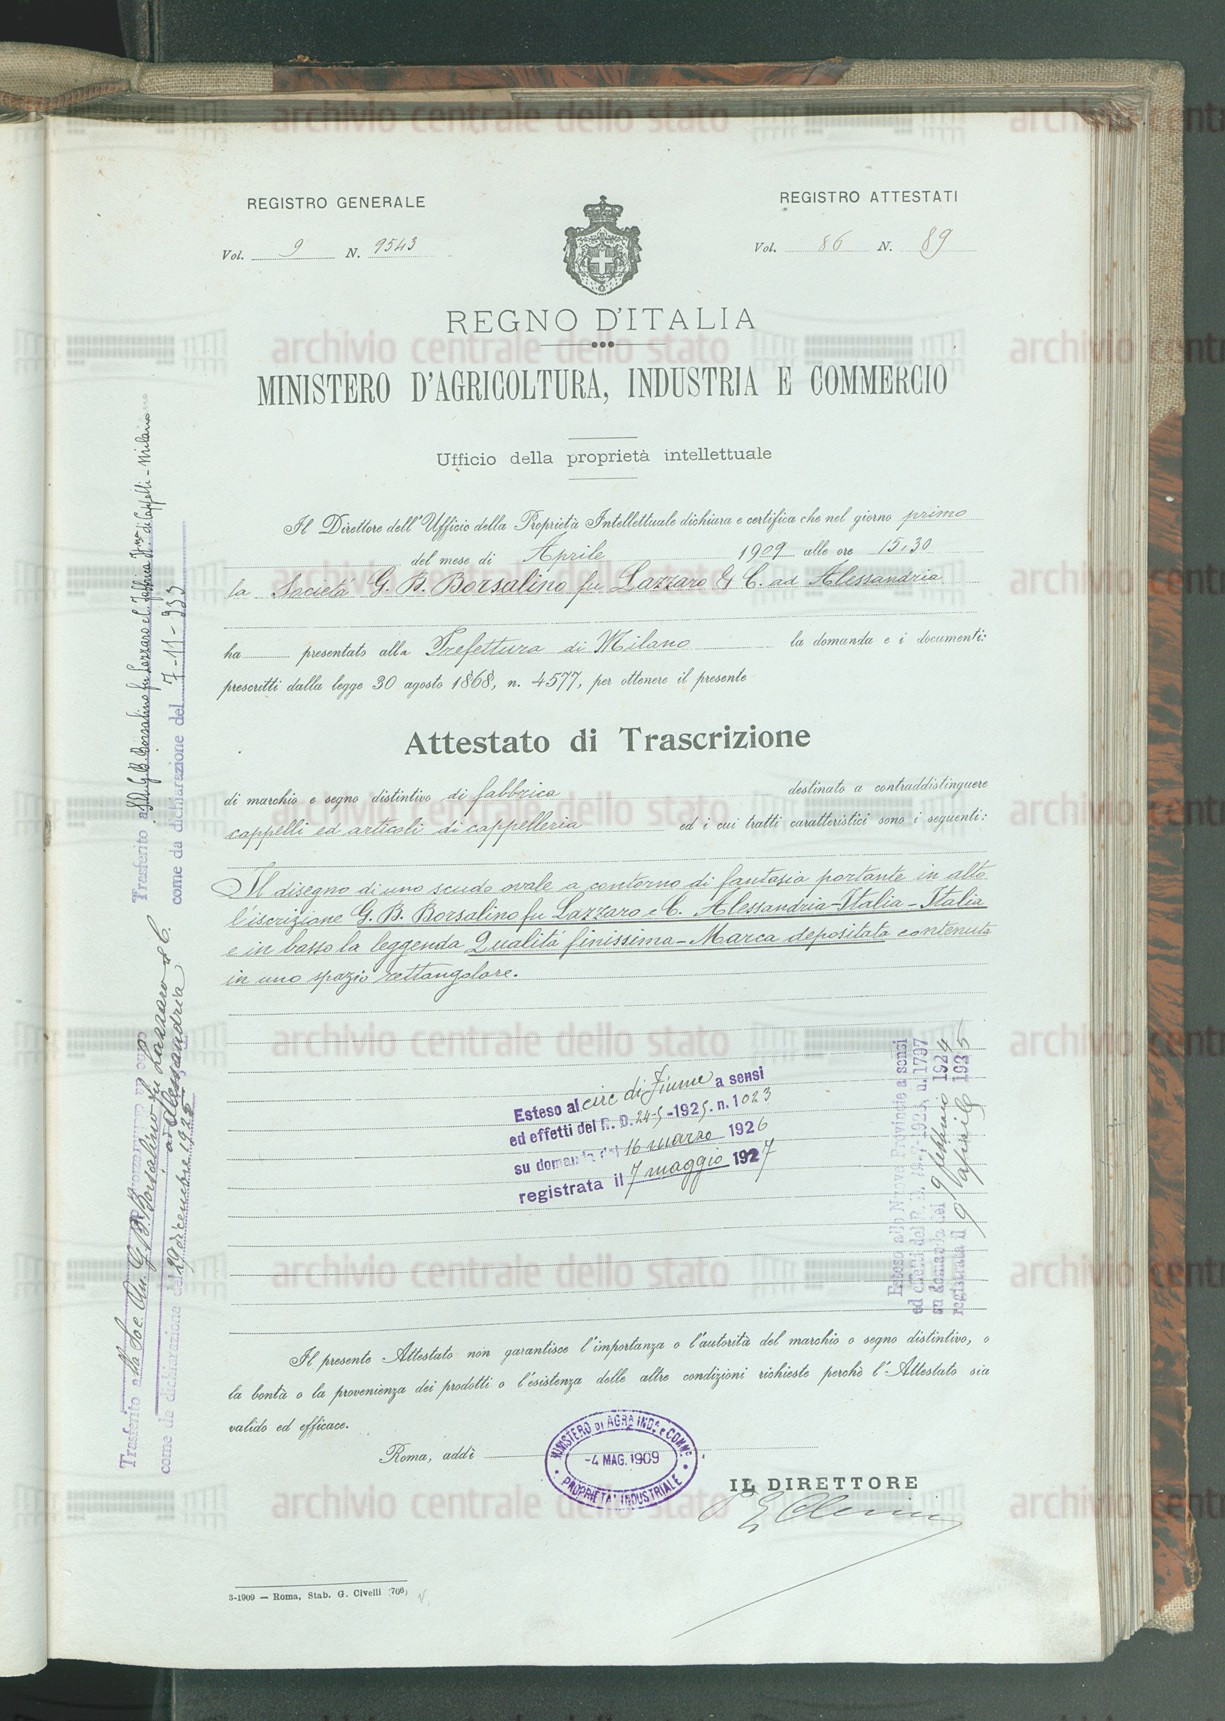 REGISTRO GENERALE
Vol. 9 N. 9543
REGISTRO ATTESTATI
Vol. 86 N. 89
REGNO D'ITALIA
MINISTERO D'AGRICOLTURA, INDUSTRIA E COMMERCIO
Ufficio della proprietà intellettuale
Il Direttore dell'Ufficio della Proprietà Intellettuale dichiara e certifica che nel giorno primo
del mese di Aprile 1909 alle ore 15,30
la Società G. B. Borsalino fu Lazzaro & C. ad Alessandria
ha presentato alla Prefettura di Milano la domanda e i documenti:
prescritti dalla legge 30 agosto 1868, n. 4577, per ottenere il presente
Attestato di Trascrizione
di marchio e segno distintivo di fabbrica destinato a contraddistinguere
cappelli ed articoli di cappelleria ed i cui tratti caratteristici sono i seguenti:
Il disegno di uno scudo ovale a contorno di fantasia portante in alto
l'iscrizione G. B. Borsalino fu Lazzaro e C. Alessandria-Italia-Italia
e in basso la leggenda Qualità finissima-Marca depositata contenuta
in uno spazio rettangolare.
Esteso al circ di Fiume a sensi
ed effetti del R. D. 24-5-1925. n. 1023
su domanda del 16 marzo 1926
registrata il 7 maggio 1927
Esteso alle Nuove Provincie a sensi
ed effetti del R. D. 1923, n. 1797
su domanda del 9 febbraio 1924
registrata il 9 aprile 1925
Trasferito alla Soc. An. G. B. Borsalino fu Lazzaro & C.
ad Alessandria
come da dichiarazione del 29 dicembre 1925
Trasferito a S. A. G. B. Borsalino fu Lazzaro e C. di Cappelli - Milano
come da dichiarazione del 7-11-933
Il presente Attestato non garantisce l'importanza o l'autorità del marchio o segno distintivo, o
la bontà o la provenienza dei prodotti o l'esistenza delle altre condizioni richieste perchè l'Attestato sia
valido ed efficace.
Roma, addì
MINISTERO DI AGRA INDA e COMMO
-4 MAG. 1909
PROPRIETA' INDUSTRIALE
IL DIRETTORE
3-1909 — Roma, Stab. G. Civelli (706)
archivio centrale dello stato